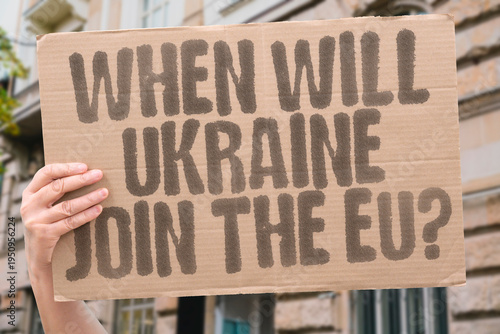 WHEN WILL
UKRAINE
JOIN THE EU?
1950956224